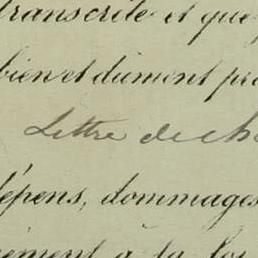 transcrite et que
bien et dûment pr
Lettre de ch
dépens, dommages
ement à la loi